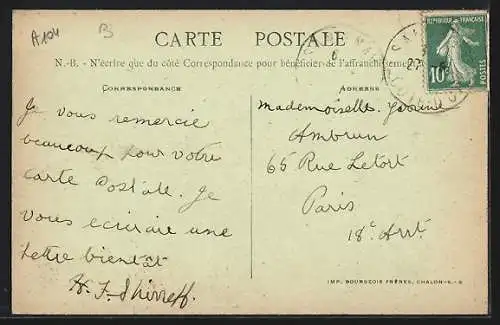 A104
B
CARTE POSTALE
N.-B. - N'écrire que du côté Correspondance pour bénéficier de l'affranchissement
CORRESPONDANCE
ADRESSE
Je vous remercie
beaucoup pour votre
carte postale. Je
vous ecrirai une
lettre bientôt
H. F. Shirreff.
Mademoiselle
Ambrun
65 Rue Letort
Paris
18e Arrt.
RÉPUBLIQUE FRANÇAISE
10c
POSTES
IMP. BOURGEOIS FRÈRES, CHALON-S.-S